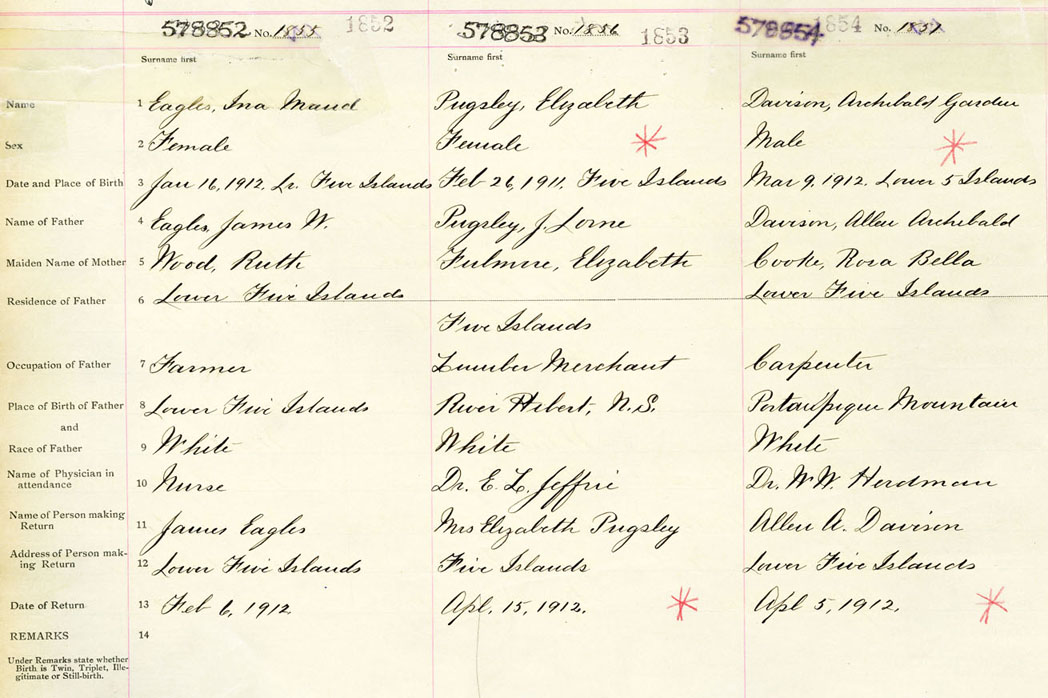 578852 No. 1855 1852 578853 No. 1856 1853 578854 1854 No. 1857
Surname first Surname first Surname first
Name 1 Eagles, Ina Maud Pugsley, Elizabeth Davison, Archibald Garden
Sex 2 Female Female Male
Date and Place of Birth 3 Jan 16, 1912, Lr. Five Islands Feb 26, 1911, Five Islands Mar 9, 1912. Lower 5 Islands
Name of Father 4 Eagles, James W. Pugsley, J. Lorne Davison, Allen Archibald
Maiden Name of Mother 5 Wood, Ruth Fulmore, Elizabeth Cooke, Rosa Bella
Residence of Father 6 Lower Five Islands Lower Five Islands
Five Islands
Occupation of Father 7 Farmer Lumber Merchant Carpenter
Place of Birth of Father 8 Lower Five Islands River Hebert, N.S. Portaupique Mountain
and
Race of Father 9 White White White
Name of Physician in
attendance 10 Nurse Dr. E. L. Jeffrie Dr. W.W. Herdman
Name of Person making
Return 11 James Eagles Mrs Elizabeth Pugsley Allen A. Davison
Address of Person mak-
ing Return 12 Lower Five Islands Five Islands Lower Five Islands
Date of Return 13 Feb 6, 1912 Apl. 15, 1912. Apl 5, 1912.
REMARKS 14
Under Remarks state whether
Birth is Twin, Triplet, Ille-
gitimate or Still-birth.